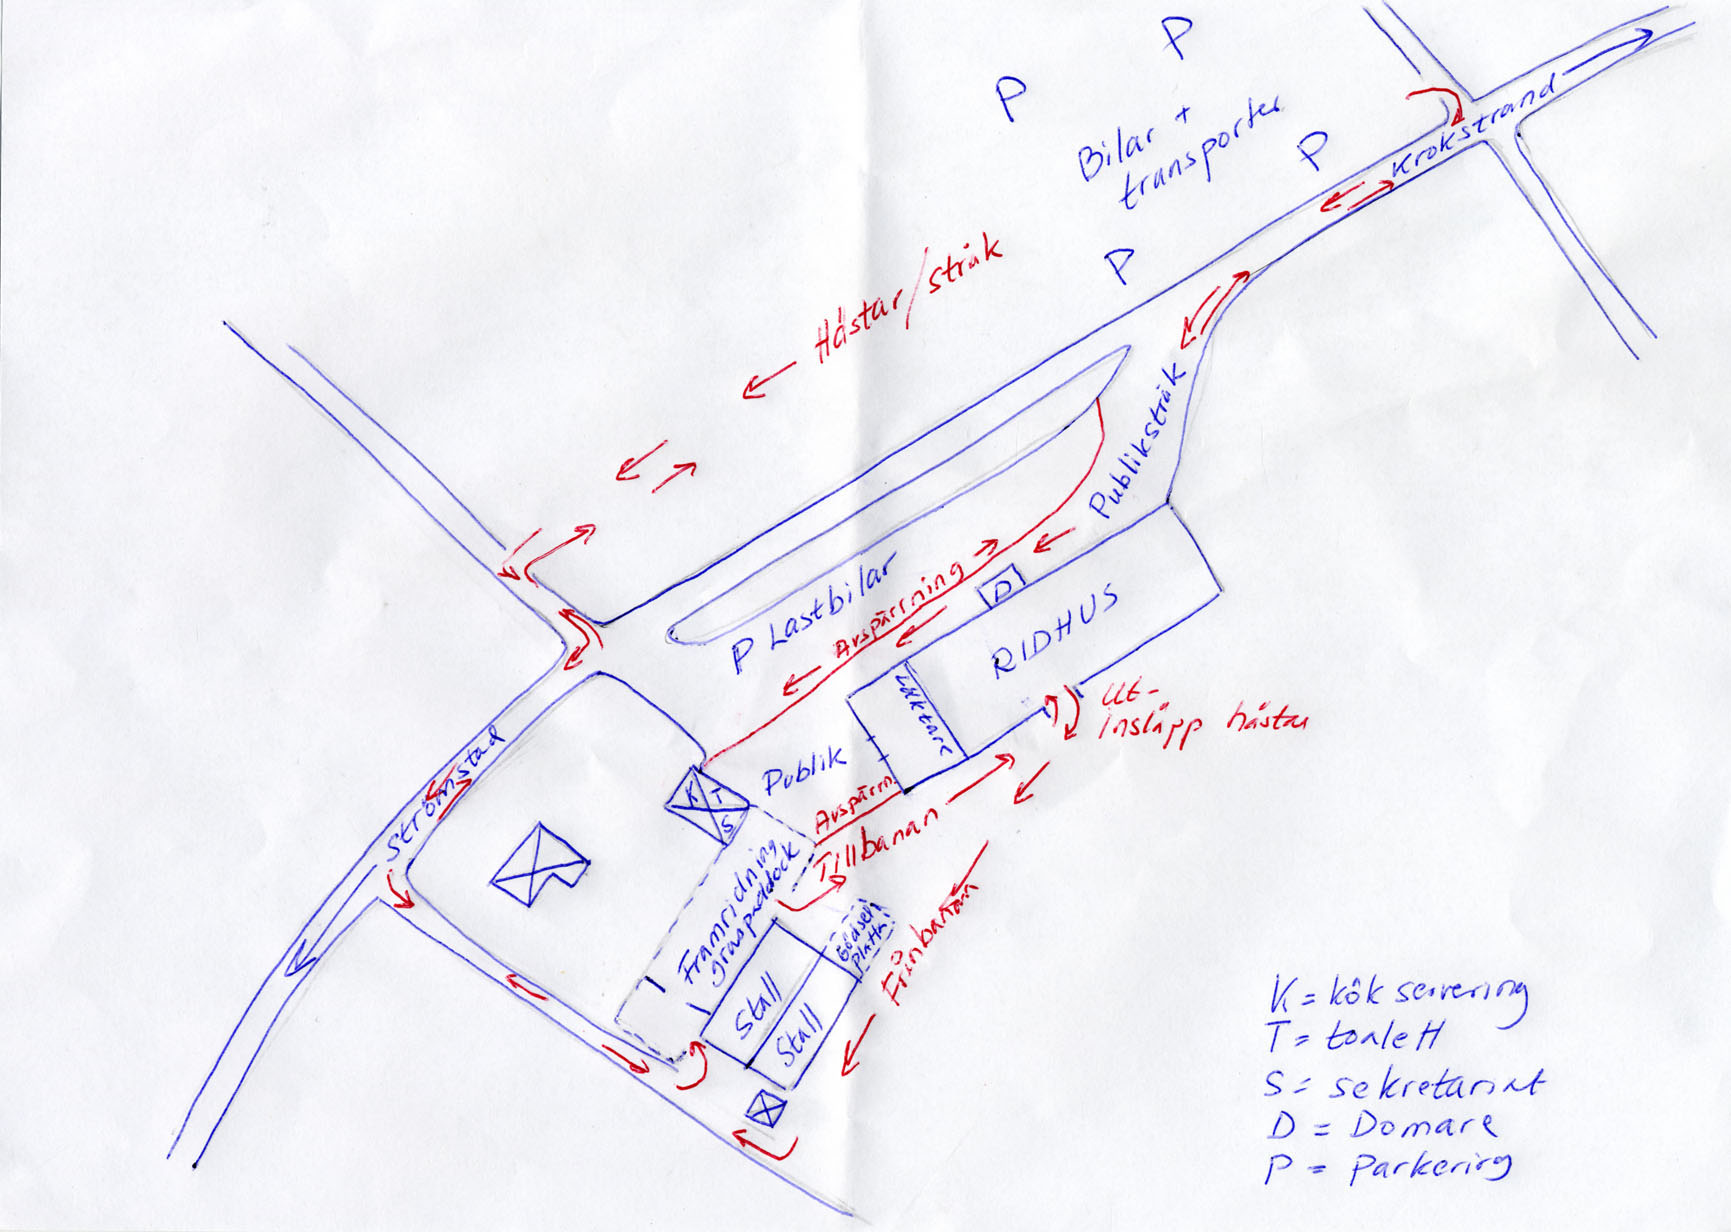 P
P
Bilar +
transporter
P
Krokstrand
P
Hästar/stråk
Publikstråk
P Lastbilar
Avspärrning
D
RIDHUS
Läktare
Ut-
insläpp hästar
Strömstad
K
T
S
Publik
Avspärrn.
Till banan
Framridning
gräspaddock
Gödsel
platta
Från banan
Stall
Stall
K = kök servering
T = toalett
S = sekretariat
D = Domare
P = Parkering